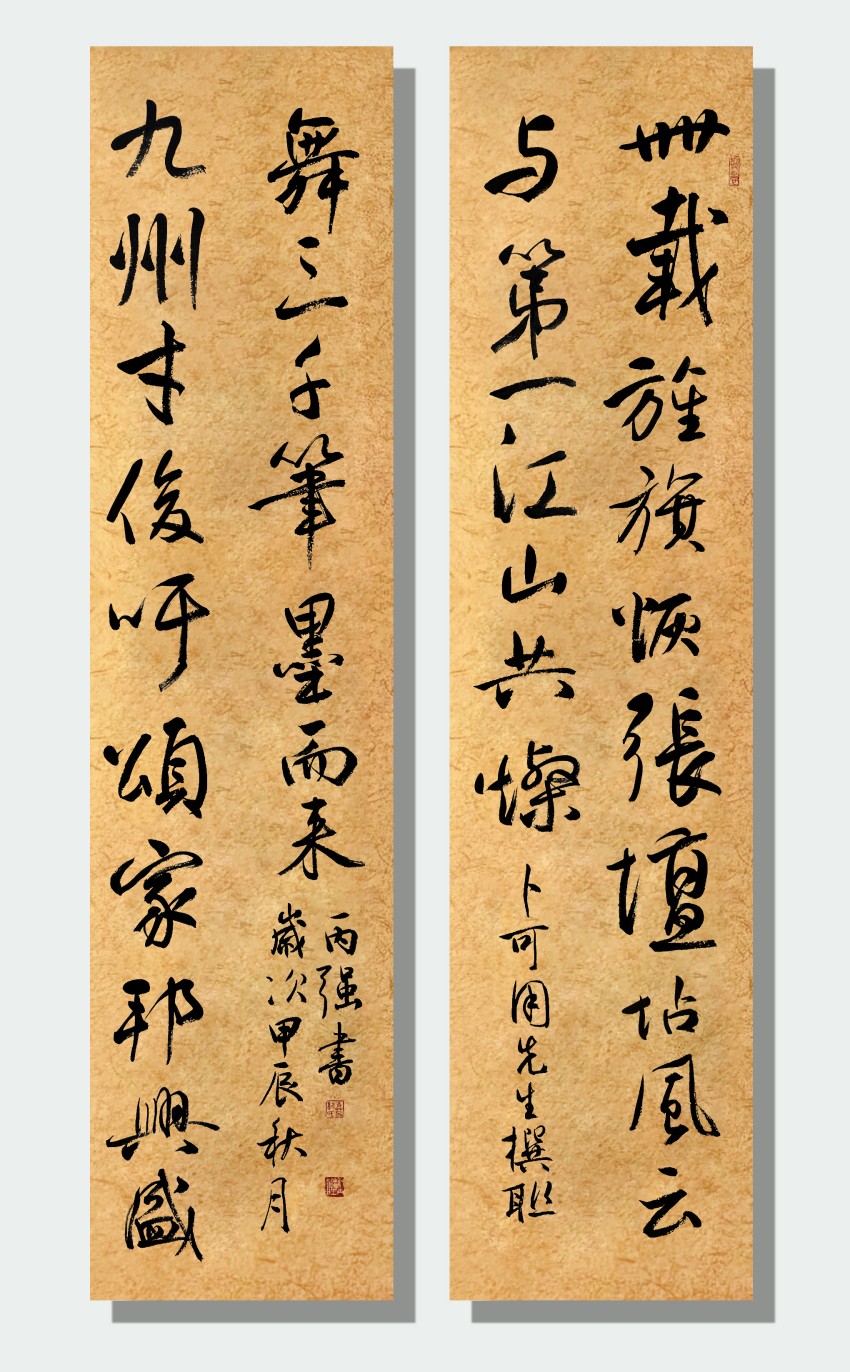 卌載旌旗恢張壇坫風云
与第一江山共燦
卜可周先生撰聯
九州才俊吁頌家邦興盛
舞三千筆墨而来
歲次甲辰秋月
丙强書